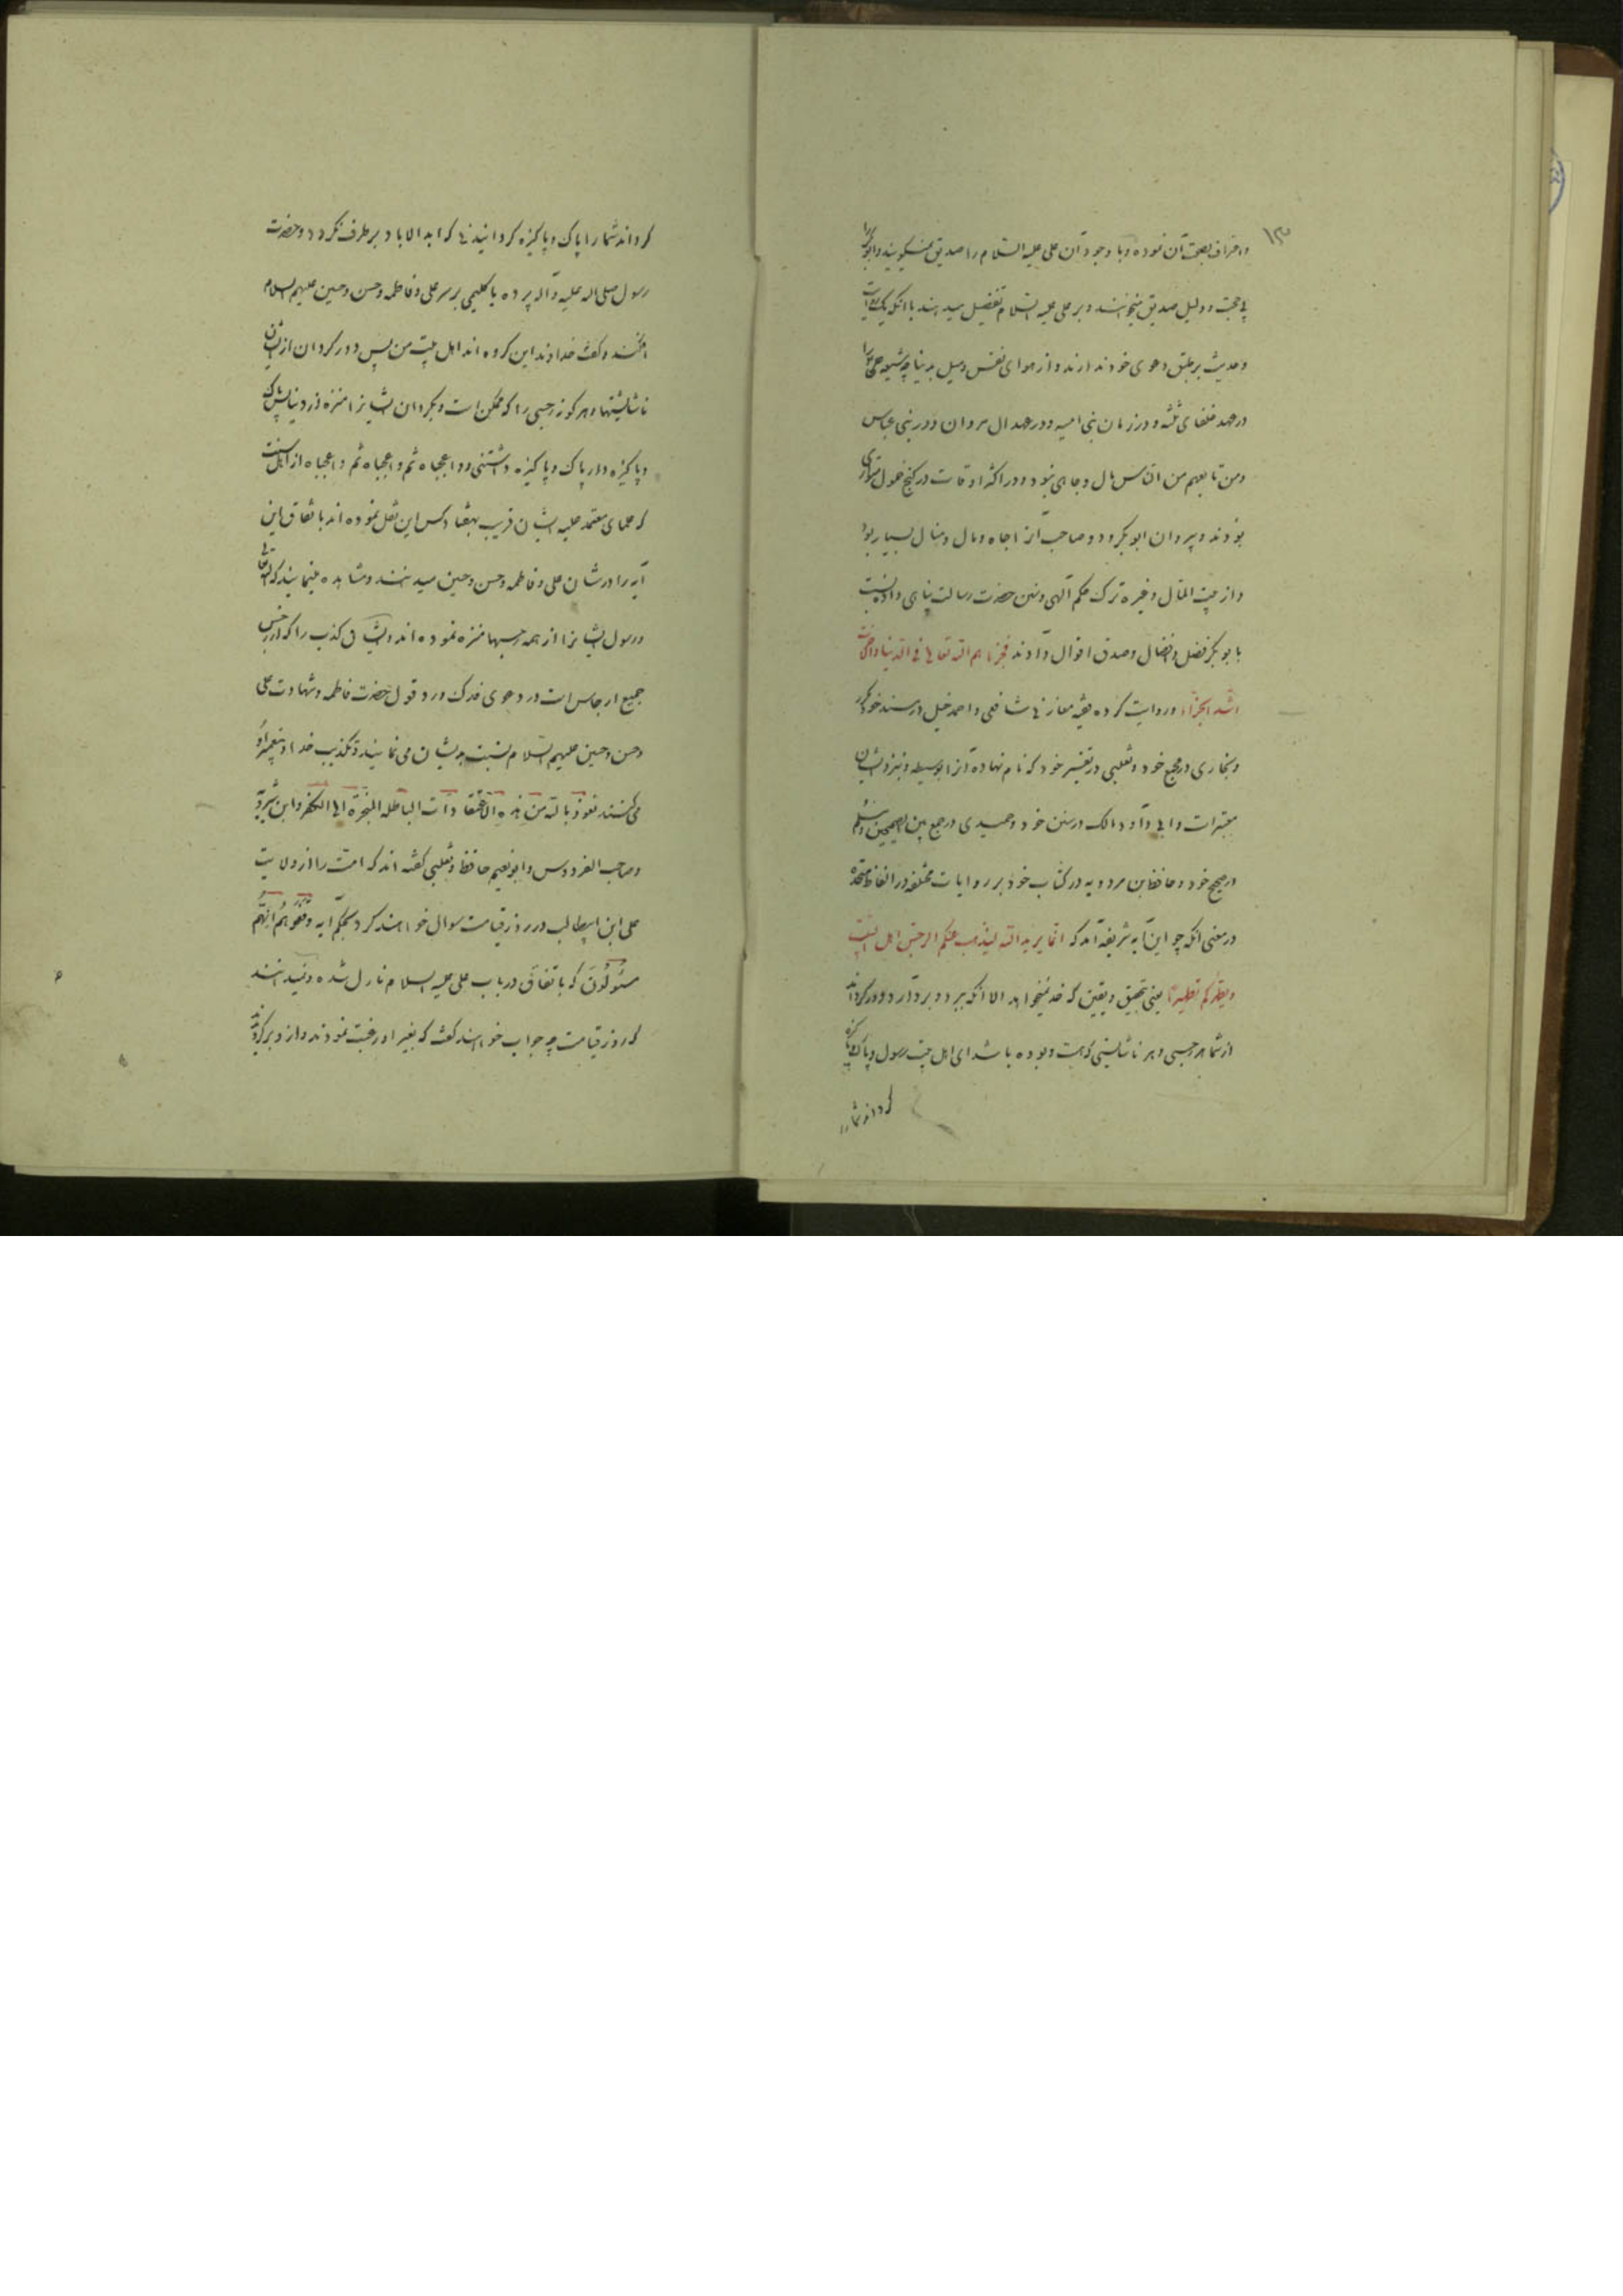 ۱۳
واعتراف بصحت آن نموده و با وجود آن علی علیه السلام را صدیق نمیگویند و ابوبکر را
بی حجت و دلیل صدیق میخوانند و بر علی علیه السلام تفضیل میدهند با آنکه یک آیت
و حدیث بر طبق دعوی خود ندارند و از هوای نفس و میل بدنیا چه شیعه علی را
در عهد خلفای ثلثه و در زمان بنی امیه و در عهد ال مروان و در بنی عباس
ومن تابعهم من الناس مال و جاهی نبود و در اکثر اوقات در کنج خمول متواری
بودند و پیروان ابو بکر و دو صاحب آنرا جاه و مال و منال بسیار بود
و از بیت المال و غیره ترک حکم آلهی و سنن حضرت رسالت پناهی داده نسبت
بابو بکر فضل و افضال و صدق اقوال دادند فجزاهم الله تعالی فی الدنیا والاخرت
اشد الجزاء و روایت کرده فقیه مغازلی شافعی و احمد حنبل در مسند خود
و بخاری در خود و ثعلبی در تفسیر خود که نام نهاده آنرا بوسیط و نزد ایشان
معتبرات و ابی داود و مالک در سنن خود و حمیدی در جمع بین الصحیحین و مسلم
در صحیح خود و حافظ بن مردویه در کتاب خود بر روایات مختلفه در الفاظ متحد
در معنی انکه چو این آیه شریفه آمد که انما یرید الله لیذهب عنکم الرجس اهل البیت
ویطهرکم تطهیرا یعنی بتحقیق و یقین که خدا نمیخواهد الا انکه ببرد و بردارد و دور گرداند
از شما هر رجسی و هر ناشایستی که هست و بوده باشد ای اهل بیت رسول و پاک و پاکیزه
گرداند شمارا
گرداند شما را پاک و پاکیزه گردانیدنی که ابد الاباد بر طرف نگردد و حضرت
رسول صلی اله علیه و آله پرده یا گلیمی بر سر علی و فاطمه و حسن و حسین علیهم السلام
افکند و گفت خداوندا این گروه اند اهل بیت من پس دور گردان از ایشان
ناشایستیها و هر گونه رجسی را که ممکن است و بگردان ایشانرا منزه از دنیا پس پاک
و پاکیزه دار پاک و پاکیزه داشتنی و واعجباه ثم واعجباه ثم واعجباه از اهل سنت
که علمای معتمد علیه ایشان قریب بهفتاد کس این نقل نموده اند باتفاق این
آیه را در شان علی و فاطمه و حسن و حسین میدانند و مشاهده مینمایند که الله تعالی
و رسول ایشانرا از همه رجسها منزه نموده اند و ایشان کذب را که از رجس
جمیع ارجاس است در دعوی فدک و رد قول حضرت فاطمه و شهادت علی
و حسن و حسین علیهم السلام نسبت بدیشان می نمایند و تکذیب خدا و پیغمبر او
می کنند نعوذ بالله من هذه الاعتقادات الباطله المنجرة الی الکفر و ابن شیرویه
و صاحب الفردوس و ابو نعیم حافظ و ثعلبی گفته اند که امت را از ولایت
علی ابن ابیطالب در روز قیامت سوال خواهند کرد بحکم آیه وقفوهم انهم
مسئولون که باتفاق در باب علی علیه السلام نازل شده و نمیدانند
که روز قیامت چه جواب خواهند گفت که بغیر او رغبت نمودند و از و برگردیدند